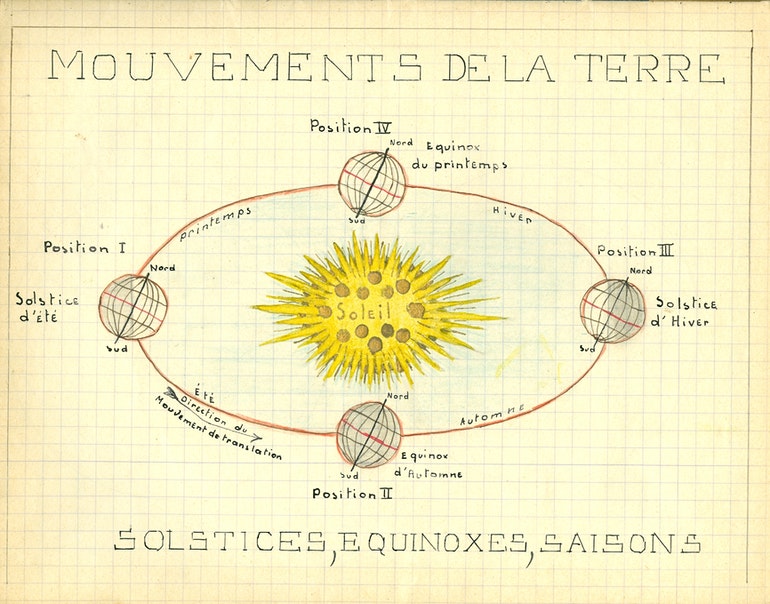 MOUVEMENTS DE LA TERRE
Position IV
Nord
Equinox
du printemps
Sud
printemps
Hiver
Position I
Nord
Solstice
d'été
Sud
Soleil
Position III
Nord
Solstice
d'Hiver
Sud
Été
Direction du
Mouvement de translation
Automne
Nord
Equinox
d'Automne
Sud
Position II
SOLSTICES, EQUINOXES, SAISONS